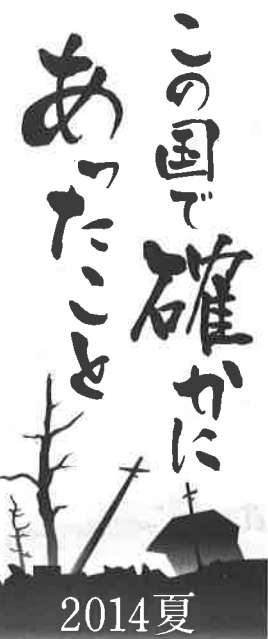 この国で確かに
あったこと
2014夏